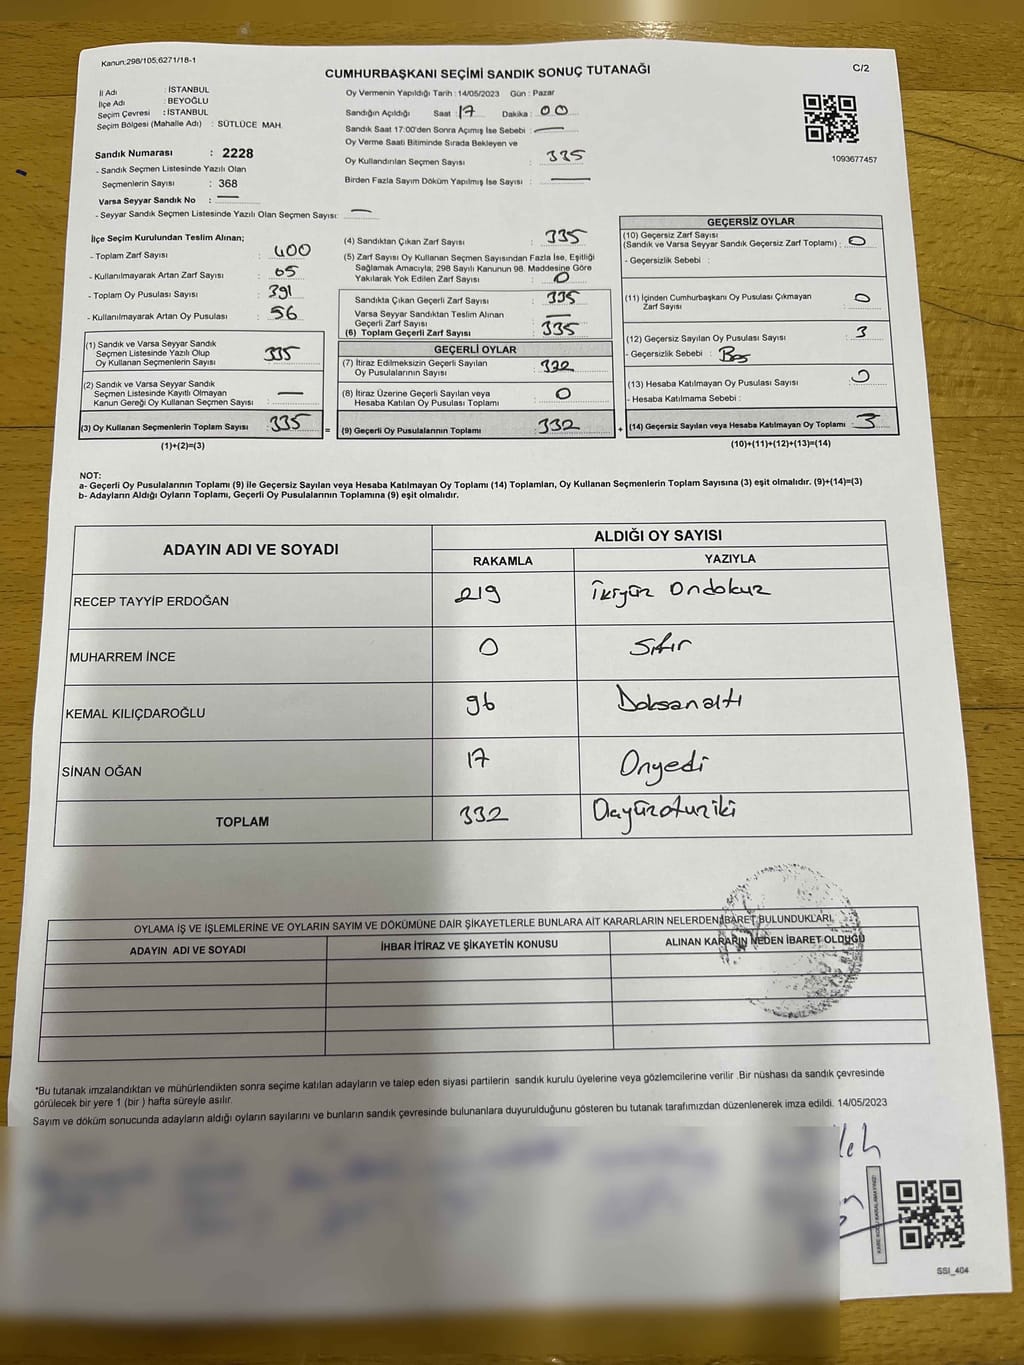 Kanun:298/105,6271/18-1
CUMHURBAŞKANI SEÇİMİ SANDIK SONUÇ TUTANAĞI
C/2
İl Adı : İSTANBUL
İlçe Adı : BEYOĞLU
Seçim Çevresi : İSTANBUL
Seçim Bölgesi (Mahalle Adı) : SÜTLÜCE MAH.
Oy Vermenin Yapıldığı Tarih : 14/05/2023 Gün : Pazar
Sandığın Açıldığı Saat : 17 Dakika : 00
Sandık Saat 17:00'den Sonra Açımış İse Sebebi : —
Oy Verme Saati Bitiminde Sırada Bekleyen ve
Oy Kullandırılan Seçmen Sayısı : 335
Birden Fazla Sayım Döküm Yapılmış İse Sayısı : —
1093677457
Sandık Numarası : 2228
- Sandık Seçmen Listesinde Yazılı Olan
Seçmenlerin Sayısı : 368
Varsa Seyyar Sandık No : —
- Seyyar Sandık Seçmen Listesinde Yazılı Olan Seçmen Sayısı: —
İlçe Seçim Kurulundan Teslim Alınan;
- Toplam Zarf Sayısı : 400
- Kullanılmayarak Artan Zarf Sayısı : 65
- Toplam Oy Pusulası Sayısı : 391
- Kullanılmayarak Artan Oy Pusulası : 56
(1) Sandık ve Varsa Seyyar Sandık
Seçmen Listesinde Yazılı Olup
Oy Kullanan Seçmenlerin Sayısı : 335
(2) Sandık ve Varsa Seyyar Sandık
Seçmen Listesinde Kayıtlı Olmayan
Kanun Gereği Oy Kullanan Seçmen Sayısı : —
(3) Oy Kullanan Seçmenlerin Toplam Sayısı : 335
(1)+(2)=(3)
(4) Sandıktan Çıkan Zarf Sayısı : 335
(5) Zarf Sayısı Oy Kullanan Seçmen Sayısından Fazla İse, Eşitliği
Sağlamak Amacıyla; 298 Sayılı Kanunun 98. Maddesine Göre
Yakılarak Yok Edilen Zarf Sayısı : 0
Sandıkta Çıkan Geçerli Zarf Sayısı : 335
Varsa Seyyar Sandıktan Teslim Alınan
Geçerli Zarf Sayısı : —
(6) Toplam Geçerli Zarf Sayısı : 335
GEÇERLİ OYLAR
(7) İtiraz Edilmeksizin Geçerli Sayılan
Oy Pusulalarının Sayısı : 332
(8) İtiraz Üzerine Geçerli Sayılan veya
Hesaba Katılan Oy Pusulası Toplamı : 0
= (9) Geçerli Oy Pusulalarının Toplamı : 332
GEÇERSİZ OYLAR
(10) Geçersiz Zarf Sayısı
(Sandık ve Varsa Seyyar Sandık Geçersiz Zarf Toplamı) : 0
- Geçersizlik Sebebi :
(11) İçinden Cumhurbaşkanı Oy Pusulası Çıkmayan
Zarf Sayısı : 0
(12) Geçersiz Sayılan Oy Pusulası Sayısı : 3
- Geçersizlik Sebebi : Boş
(13) Hesaba Katılmayan Oy Pusulası Sayısı : 0
- Hesaba Katılmama Sebebi :
+ (14) Geçersiz Sayılan veya Hesaba Katılmayan Oy Toplamı : 3
(10)+(11)+(12)+(13)=(14)
NOT:
a- Geçerli Oy Pusulalarının Toplamı (9) ile Geçersiz Sayılan veya Hesaba Katılmayan Oy Toplamı (14) Toplamları, Oy Kullanan Seçmenlerin Toplam Sayısına (3) eşit olmalıdır. (9)+(14)=(3)
b- Adayların Aldığı Oyların Toplamı, Geçerli Oy Pusulalarının Toplamına (9) eşit olmalıdır.
ADAYIN ADI VE SOYADI
ALDIĞI OY SAYISI
RAKAMLA YAZIYLA
RECEP TAYYİP ERDOĞAN 219 İkiyüz Ondokuz
MUHARREM İNCE 0 Sıfır
KEMAL KILIÇDAROĞLU 96 Doksanaltı
SİNAN OĞAN 17 Onyedi
TOPLAM 332
OYLAMA İŞ VE İŞLEMLERİNE VE OYLARIN SAYIM VE DÖKÜMÜNE DAİR ŞİKAYETLERLE BUNLARA AİT KARARLARIN NELERDEN İBARET BULUNDUKLARI,
ADAYIN ADI VE SOYADI
İHBAR İTİRAZ VE ŞİKAYETİN KONUSU
ALINAN KARARIN NEDEN İBARET OLDUĞU
*Bu tutanak imzalandıktan ve mühürlendikten sonra seçime katılan adayların ve talep eden siyasi partilerin sandık kurulu üyelerine veya gözlemcilerine verilir .Bir nüshası da sandık çevresinde
görülecek bir yere 1 (bir ) hafta süreyle asılır.
Sayım ve döküm sonucunda adayların aldığı oyların sayılarını ve bunların sandık çevresinde bulunanlara duyurulduğunu gösteren bu tutanak tarafımızdan düzenlenerek imza edildi. 14/05/2023
KARE KODU KARALAMAYINIZ!
SSI_404